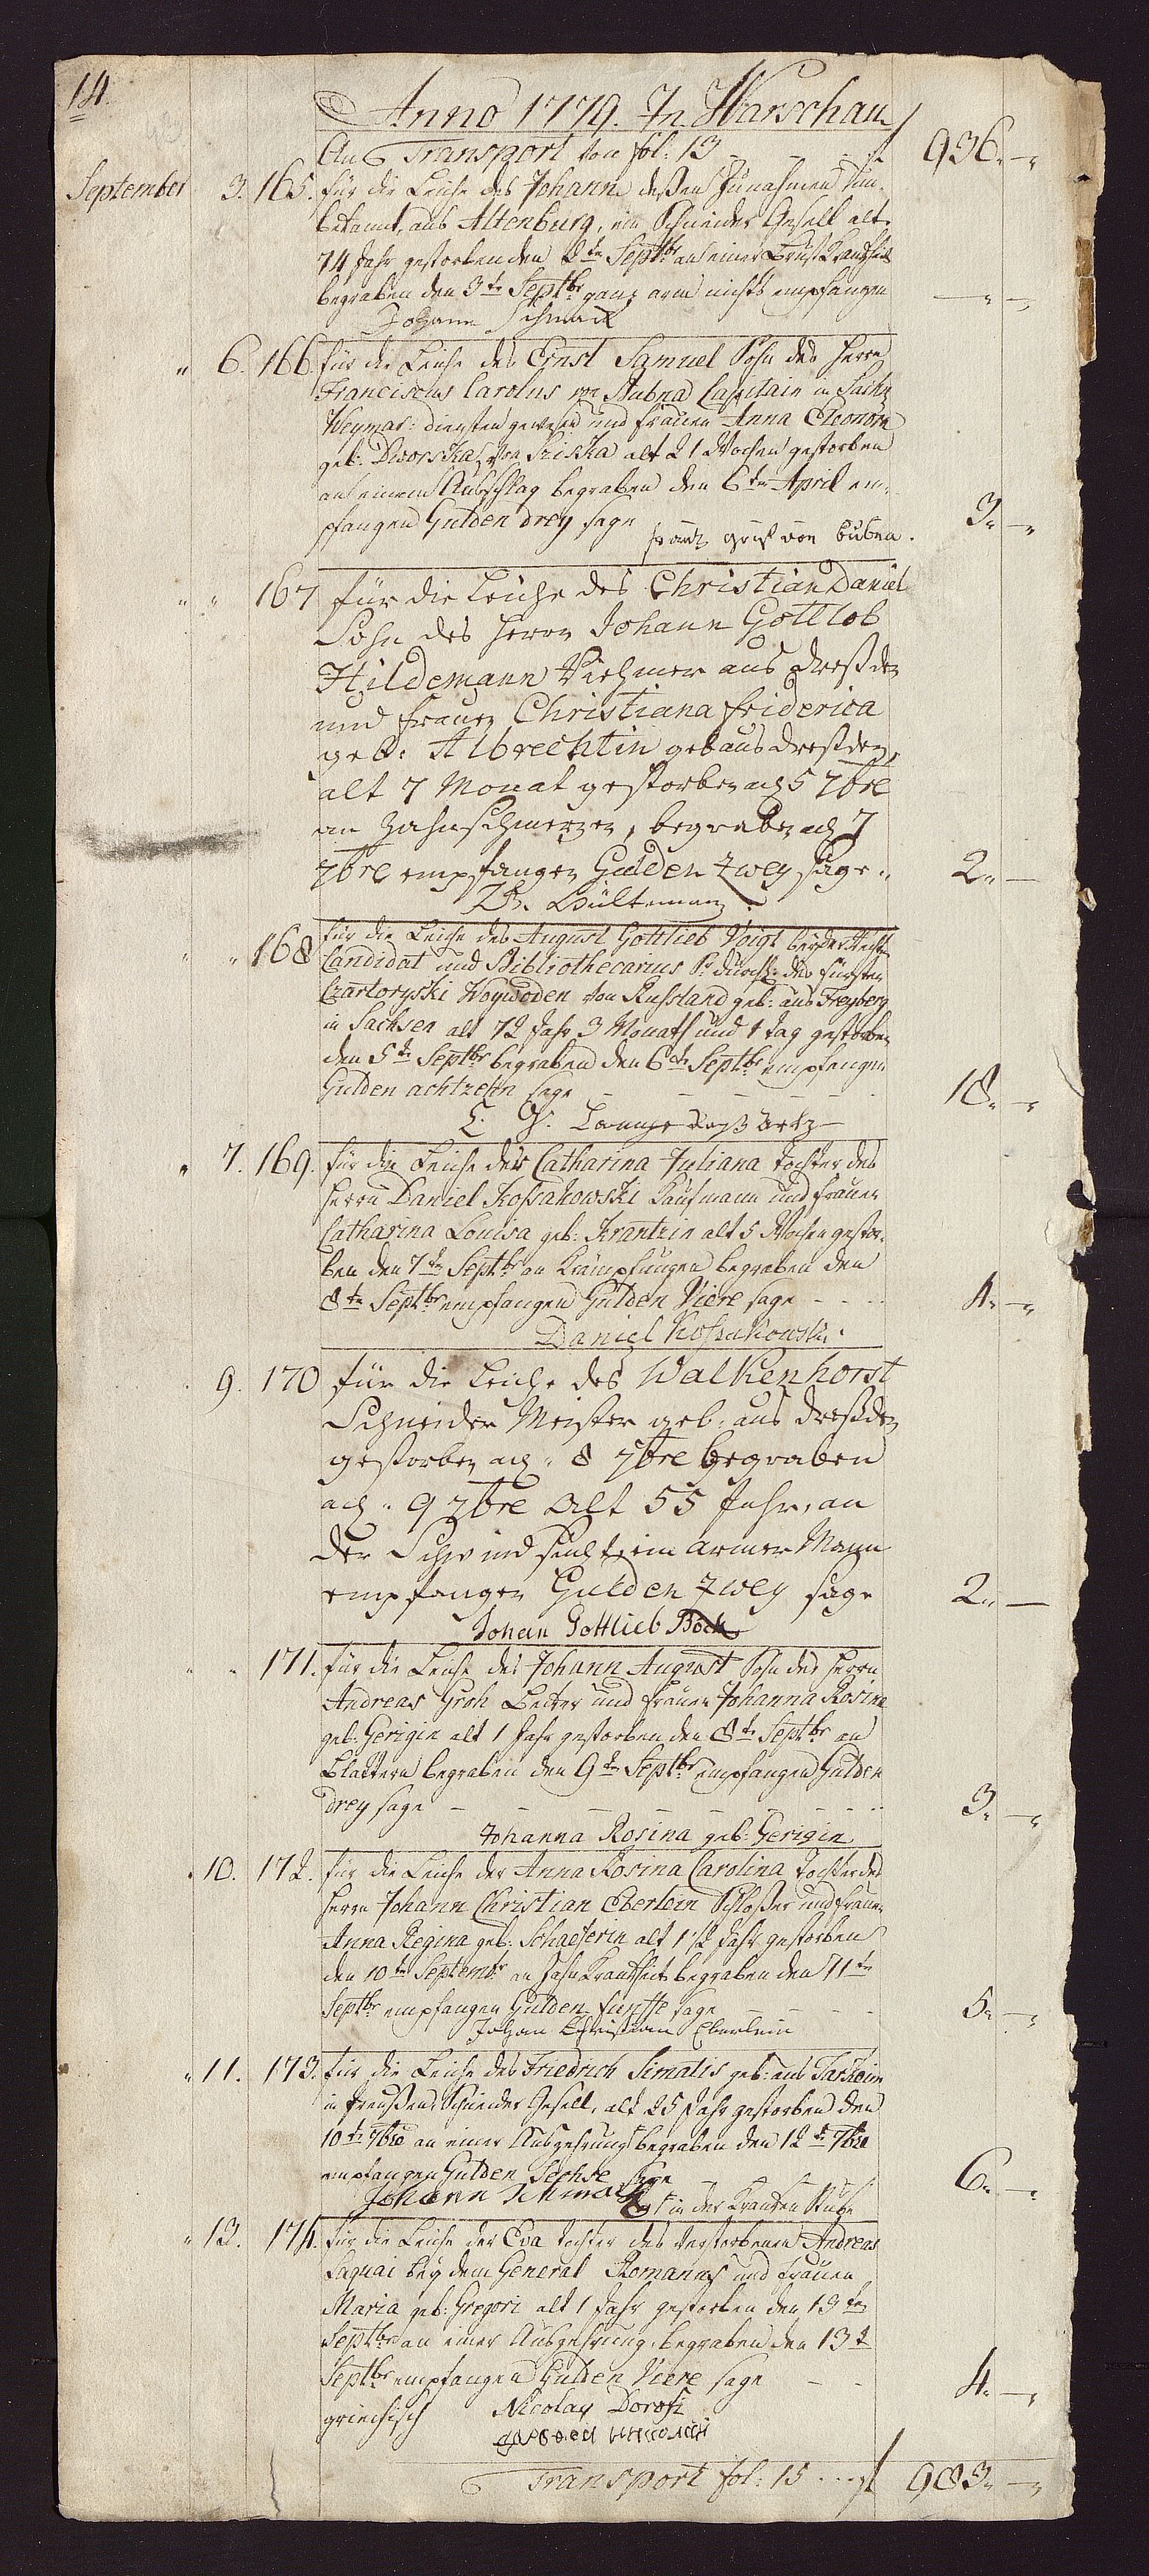 14.
Anno 1779. In Warschau
An Transport von fol: 13 - - - fl 936.-"
September 3. 165. für die Leiche des Johann deßen Zunahmen un-
bekannt, aus Altenburg, ein Schneider Gesell alt
74 Jahr gestorben den 2ten Septbr an einer Brust Krankheit
begraben den 3ten Septbr ganz arm nichts empfangen -"-
Johann Schmack
" 6. 166 für die Leiche des Ernst Samuel Sohn des Herrn
Franciscus Carolus von Bubna Capitain in Sachs
Weymar: diensten gewesen und Frauen Anna Eleonora
geb: Dworska von alt 21 Wochen gestorben
an einem Ausschlag begraben den 6ten April em-
pfangen Gulden drey sage 3.-"
Frantz von Bubna.
" " 167 für die Leiche des Christian Daniel
Sohn des Herrn Johann Gottlob
Hildemann aus Dreßden
und Frauen Christiana Friderica
geb: Albrechtin geb aus Dreßden,
alt 7 Monat gestorben d 5 7bre
an Zahnschmerzen, begraben d 7
7bre empfangen Gulden Zwey sage " 2"-
" " 168 für die Leiche des August Gottlieb Voigt beyder Rechte
Candidat und Bibliothecarius Sr. durchl: des Fürsten
Czartoryski Woywoden von Russland geb: aus Freyberg
in Sachsen alt 72 Jahr 3 Monath und 1 Tag gestorben
den 5ten Septbr begraben den 6ten Septbr empfangen
Gulden achtzehn sage - - - - - 18.-"
" 7. 169. für die Leiche der Catharina Juliana Tochter des
Herrn Daniel Kossakowski Kaufmann und Frauen
Catharina Louisa geb: Krantzin alt 5 Wochen gestor-
ben den 7ten Septbr an Krampfungen begraben den
8ten Septbr empfangen Gulden Viere sage - - - 4.-"
Daniel Kossakowski.
9. 170 für die Leiche des Walkenhorst
Schneider Meister geb. aus Dreßden
gestorben d. 8 7bre begraben
d. 9 7bre Alt 55 Jahr, an
der Schwindsucht ein armer Mann
empfangen Gulden Zwey sage 2.-
Johan Gottlieb Böck
" " 171. für die Leiche des Johann August Sohn des Herrn
Andreas Groh und Frauen Johanna Rosina
geb: Gerigin alt 1 Jahr gestorben den 8ten Septbr an
Blattern begraben den 9ten Septbr empfangen Gulden
drey sage - - - - - - - 3.-"
Johanna Rosina geb: Gerigin
" 10. 172. für die Leiche der Anna Rosina Carolina Tochter des
Herrn Johann Christian Eberlein Schloßer und Frauen
Anna Regina geb: Schaeferin alt 1 1/2 Jahr gestorben
den 10ten Septembr an Zahn Krankheit begraben den 11ten
Septbr empfangen Gulden funffe sage - - - 5.-"
Johan Christian Eberlein
" 11. 173. für die Leiche des Friedrich Simatis geb: aus
in Preußen, Schneider Gesell, alt 25 Jahr gestorben den
10ten 7bre an einer Auszehrung begraben den 12ten 7bre
empfangen Gulden Sechse sage - - - 6.-"
Johann Schmack
ist in der Kranken Stube
" 13. 174. für die Leiche der Eva Tochter des verstorbenen Andreas
Laquai bey dem General Romanus und Frauen
Maria geb: Gregori alt 1 Jahr gestorben den 13ten
Septbr an einer Auszehrung, begraben den 13t
Septbr empfangen Gulden Viere sage - - 4.-"
griechisch Nicolay Doroffi
Transport fol: 15 ... fl 983.-"